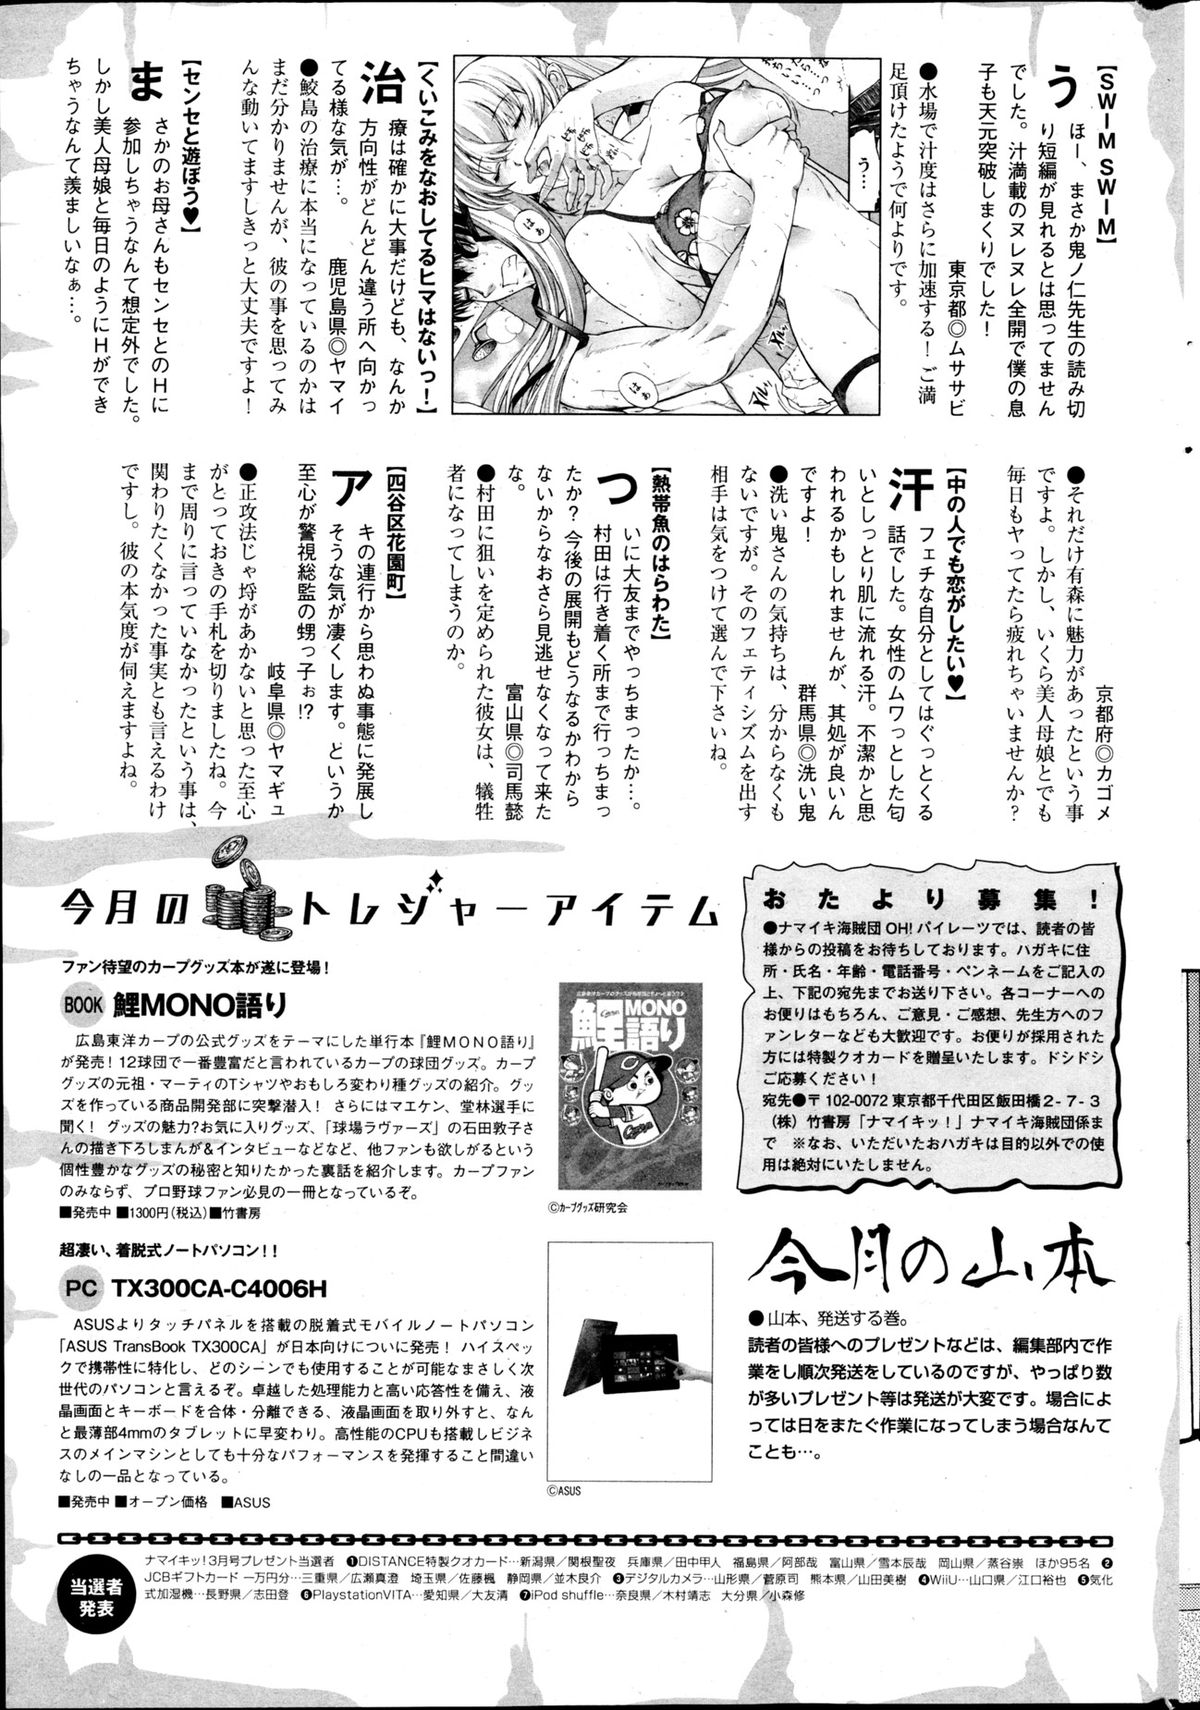 【SWIM SWIM】
うほー、まさか鬼ノ仁先生の読み切
り短編が見れるとは思ってません
でした。汁満載のヌレヌレ全開で僕の息
子も天元突破しまくりでした！
東京都◎ムササビ
●水場で汁度はさらに加速する！ご満
足頂けたようで何よりです。
う…
はぁ
はぁ
【くいこみをなおしてるヒマはないっ！】
治療は確かに大事だけども、なんか
方向性がどんどん違う所へ向かっ
てる様な気が…。　鹿児島県◎ヤマイ
●鮫島の治療に本当になっているのかは
まだ分かりませんが、彼の事を思ってみ
んな動いてますしきっと大丈夫ですよ！
【センセと遊ぼう♥】
まさかのお母さんもセンセとのHに
参加しちゃうなんて想定外でした。
しかし美人母娘と毎日のようにHができ
ちゃうなんて羨ましいなぁ…。
京都府◎カゴメ
●それだけ有森に魅力があったという事
ですよ。しかし、いくら美人母娘とでも
毎日もヤってたら疲れちゃいませんか？
【中の人でも恋がしたい♥】
汗フェチな自分としてはぐっとくる
話でした。女性のムワっとした匂
いとしっとり肌に流れる汗。不潔かと思
われるかもしれませんが、其処が良いん
ですよ！　群馬県◎洗い鬼
●洗い鬼さんの気持ちは、分からなくも
ないですが、そのフェティシズムを出す
相手は気をつけて選んで下さいね。
【熱帯魚のはらわた】
ついに大友までやっちまったか…。
村田は行き着く所まで行っちまっ
たか？今後の展開もどうなるかわから
ないからなおさら見逃せなくなって来た
な。　富山県◎司馬懿
●村田に狙いを定められた彼女は、犠牲
者になってしまうのか。
【四谷区花園町】
アキの連行から思わぬ事態に発展し
そうな気が凄くします。というか
至心が警視総監の甥っ子ぉ!?
岐阜県◎ヤマギュ
●正攻法じゃ埒があかないと思った至心
がとっておきの手札を切りましたね。今
まで周りに言っていなかったという事は、
関わりたくなかった事実とも言えるわけ
ですし。彼の本気度が伺えますよね。
今月のトレジャーアイテム
ファン待望のカープグッズ本が遂に登場！
BOOK 鯉MONO語り
広島東洋カープの公式グッズをテーマにした単行本『鯉MONO語り』
が発売！12球団で一番豊富だと言われているカープの球団グッズ。カープ
グッズの元祖・マーティのTシャツやおもしろ変わり種グッズの紹介。グッ
ズを作っている商品開発部に突撃潜入！ さらにはマエケン、堂林選手に
聞く！ グッズの魅力?お気に入りグッズ、「球場ラヴァーズ」の石田敦子さ
んの描き下ろしまんが&インタビューなどなど、他ファンも欲しがるという
個性豊かなグッズの秘密と知りたかった裏話を紹介します。カープファン
のみならず、プロ野球ファン必見の一冊となっているぞ。
■発売中 ■1300円（税込）■竹書房
鯉MONO語り
Carp
©カープグッズ研究会
超凄い、着脱式ノートパソコン！！
PC TX300CA-C4006H
ASUSよりタッチパネルを搭載の脱着式モバイルノートパソコン
「ASUS TransBook TX300CA」が日本向けについに発売！ ハイスペッ
クで携帯性に特化し、どのシーンでも使用することが可能なまさしく次
世代のパソコンと言えるぞ。卓越した処理能力と高い応答性を備え、液
晶画面とキーボードを合体・分離できる、液晶画面を取り外すと、なん
と最薄部4mmのタブレットに早変わり。高性能のCPUも搭載しビジネ
スのメインマシンとしても十分なパフォーマンスを発揮すること間違い
なしの一品となっている。
■発売中 ■オープン価格　■ASUS
©ASUS
おたより募集！
●ナマイキ海賊団 OH!パイレーツでは、読者の皆
様からの投稿をお待ちしております。ハガキに住
所・氏名・年齢・電話番号・ペンネームをご記入の
上、下記の宛先までお送り下さい。各コーナーへの
お便りはもちろん、ご意見・ご感想、先生方への
ファンレターなども大歓迎です。お便りが採用された
方には特製クオカードを贈呈いたします。ドシドシ
ご応募ください！
宛先●〒102-0072 東京都千代田区飯田橋2-7-3
（株）竹書房「ナマイキッ！」ナマイキ海賊団係ま
で　※なお、いただいたおハガキは目的以外での使
用は絶対にいたしません。
今月の山本
●山本、発送する巻。
読者の皆様へのプレゼントなどは、編集部内で作
業をし順次発送をしているのですが、やっぱり数
が多いプレゼント等は発送が大変です。場合によ
っては日をまたぐ作業になってしまう場合なんて
ことも…。
当選者
発表
ナマイキッ！3月号プレゼント当選者　❶DISTANCE特製クオカード…新潟県／関根聖夜　兵庫県／田中甲人　福島県／阿部哉　富山県／雪本辰哉　岡山県／蒸谷崇　ほか95名 ❷
JCBギフトカード 一万円分…三重県／広瀬真澄　埼玉県／佐藤楓　静岡県／並木良介　❸デジタルカメラ…山形県／菅原司　熊本県／山田美樹　❹WiiU…山口県／江口裕也　❺気化
式加湿機…長野県／志田登　❻PlaystationVITA…愛知県／大友清　❼iPod shuffle…奈良県／木村靖志　大分県／小森修